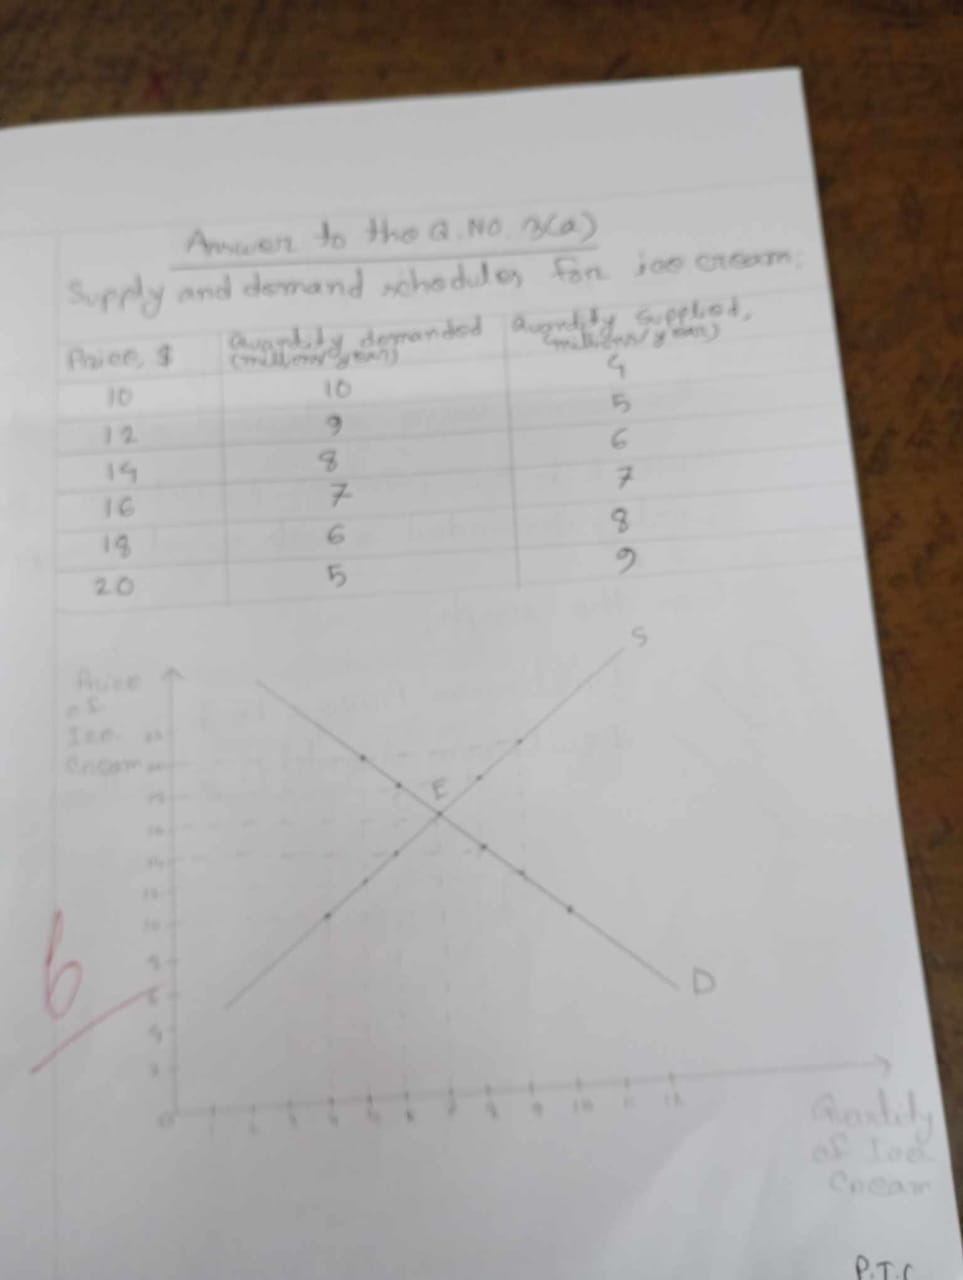 Answer to the Q. No. 3(a)
Supply and demand schedules for ice cream:
Price, $ Quantity demanded (millions/year) Quantity supplied, (millions/year)
10 10 4
12 9 5
14 8 6
16 7 7
18 6 8
20 5 9
S
Price
of
Ice
Cream
22
20
18
16
14
12
10
8
6
4
2
E
D
6
0 1 2 3 4 5 6 7 8 9 10 11 12
Quantity
of Ice
Cream
P.T.